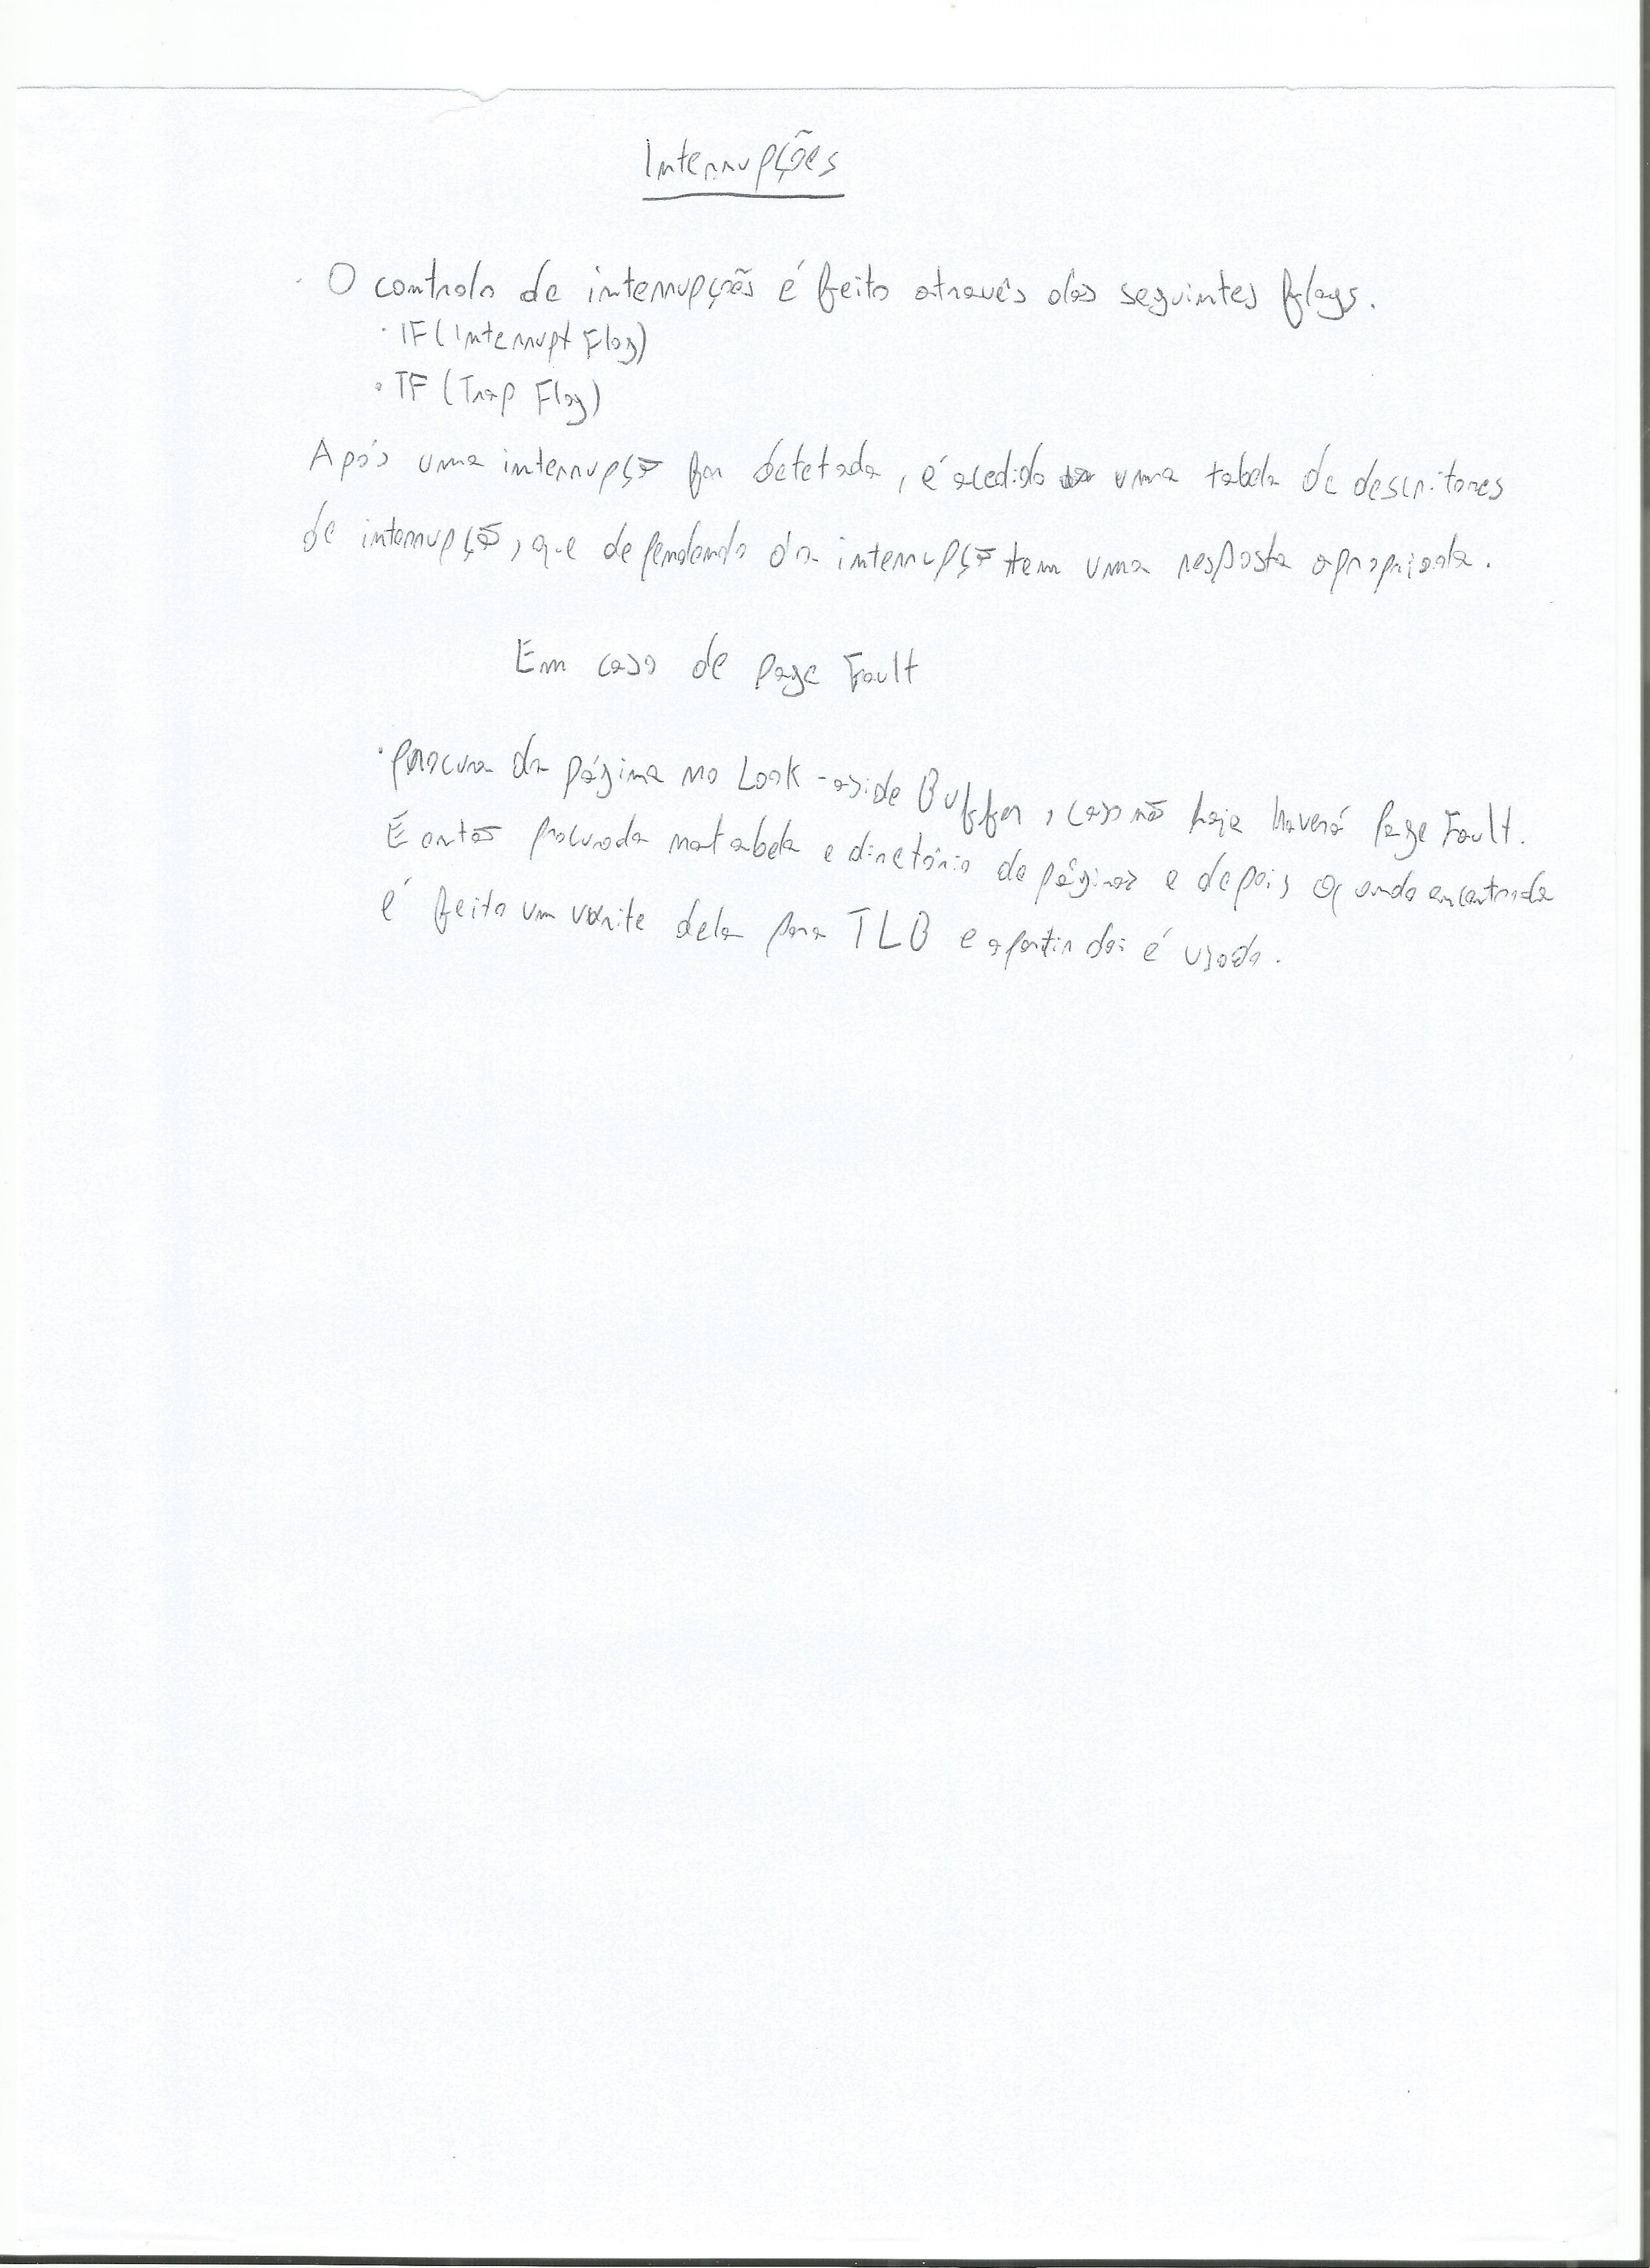 Interrupções
· O controlo de interrupções é feito através das seguintes flags.
· IF (Interrupt Flag)
· TF (Trap Flag)
Após uma interrupção for detetada, é acedido uma tabela de descritores
de interrupção, que dependendo da interrupção tem uma resposta apropriada.
Em caso de page Fault
· procura da página no Look-aside Buffer, caso não haja haverá Page Fault.
É então procurada na tabela e diretório de páginas e depois quando encontrada
é feito um write dela para TLB e a partir dai é usada.